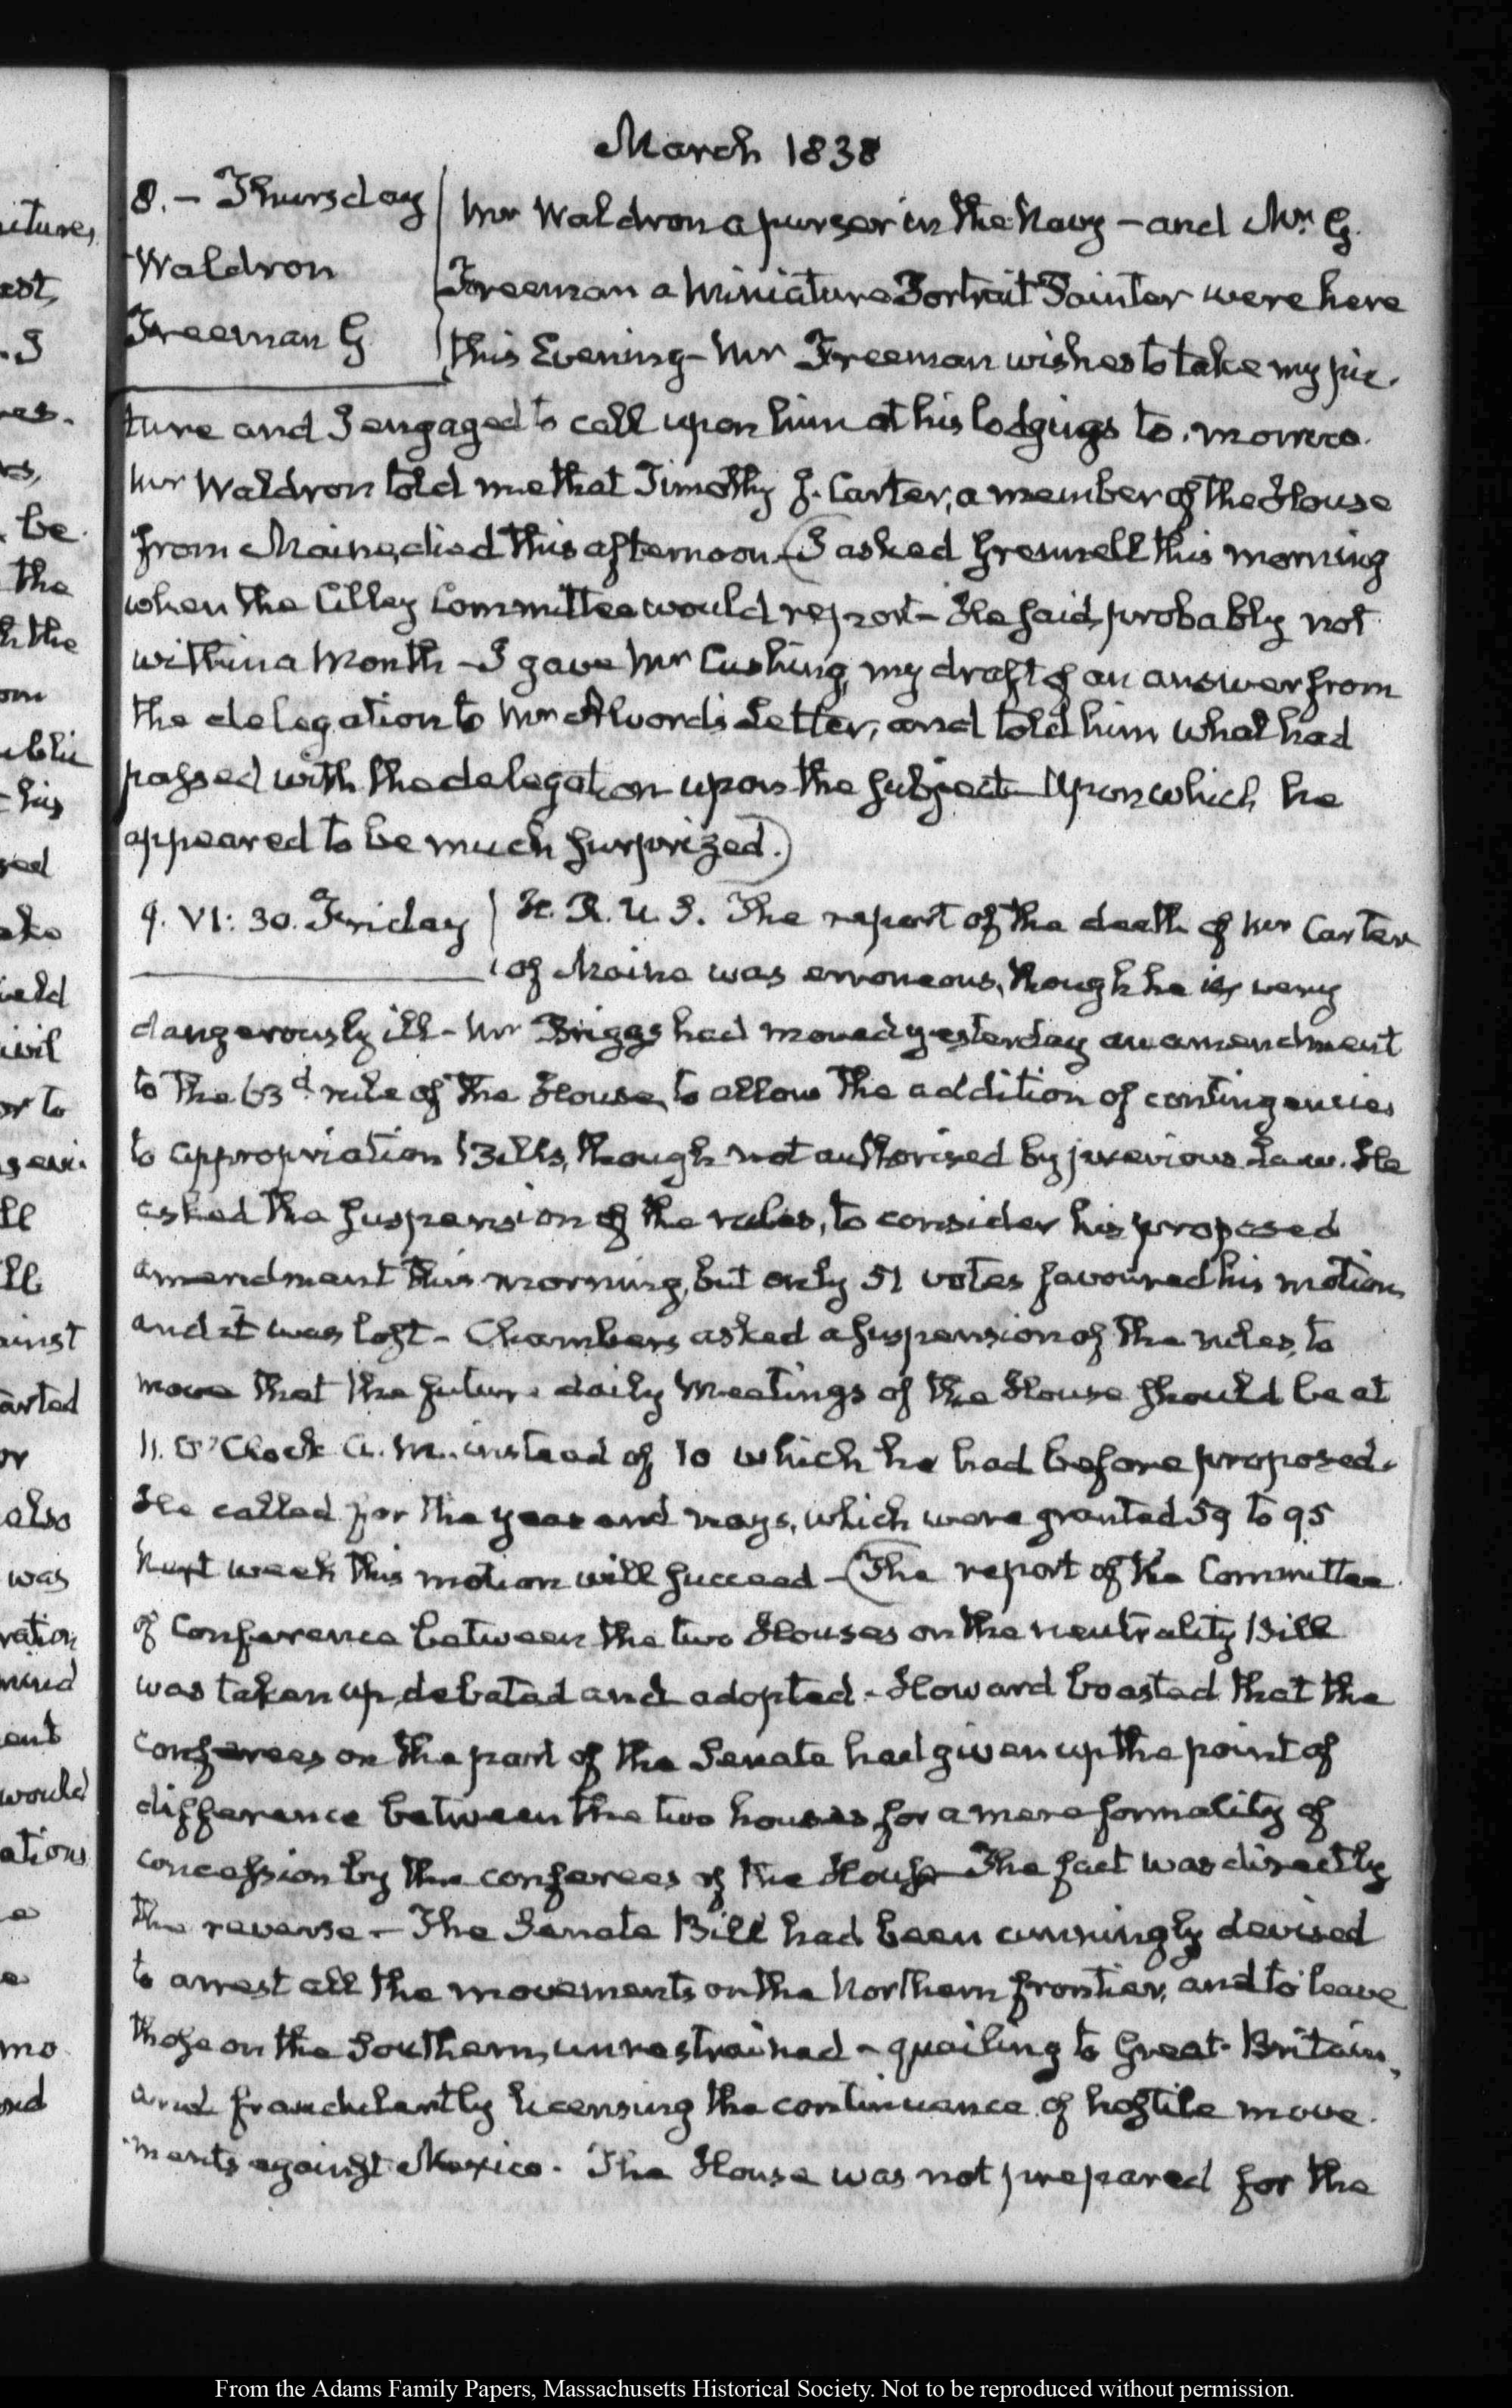 March 1838
8. – Thursday
Waldron
Freeman G
Mr Waldron a purser in the Navy – and Mr. G.
Freeman a Miniature Portrait Painter were here
this Evening – Mr Freeman wishes to take my pic-
ture and I engaged to call upon him at his lodgings to-morrow.
Mr Waldron told me that Timothy J. Carter, a member of the House
from Maine, died this afternoon – (I asked Grennell this morning
when the Cilley Committee would report – He said, probably not
within a Month – I gave Mr Cushing, my draft of an answer from
the delegation to Mr Alvord's Letter, and told him what had
passed with the delegation upon the subject – Upon which he
appeared to be much surprized.)
9. VI: 30. Friday
H. R. U. S. The report of the death of Mr Carter
of Maine was erroneous, though he is very
dangerously ill – Mr Briggs had moved yesterday an amendment
to the 63d rule of the House, to allow the addition of contingencies
to appropriation Bills, though not authorised by previous Law. He
asked the suspension of the rules, to consider his proposed
amendment this morning, but only 51 votes favoured his motion
and it was lost – Chambers asked a suspension of the rules, to
move that the future daily Meetings of the House should be at
11. O'Clock A. M. instead of 10 which he had before proposed.
He called for the yeas and nays, which were granted 59 to 95
Next week this motion will succeed – (The report of the Committee
of Conference between the two Houses on the neutrality Bill
was taken up, debated and adopted – Howard boasted that the
Conferees on the part of the Senate had given up the point of
difference between the two houses for a mere formality of
concession by the conferees of the House – The fact was directly
the reverse – The Senate Bill had been cunningly devised
to arrest all the movements on the Northern frontier, and to leave
those on the Southern, unrestrained – quailing to Great-Britain,
and fraudulently licensing the continuance of hostile move-
ments against Mexico. The House was not prepared for the
itures,
est,
. I
res.
rs,
be
the
h the
om
ublic
his
sed
ield
ivil
or to
ll
ll
ainst
arted
or
also
was
ration
mind
ent
would
ations
e
e
mo
nd
From the Adams Family Papers, Massachusetts Historical Society. Not to be reproduced without permission.